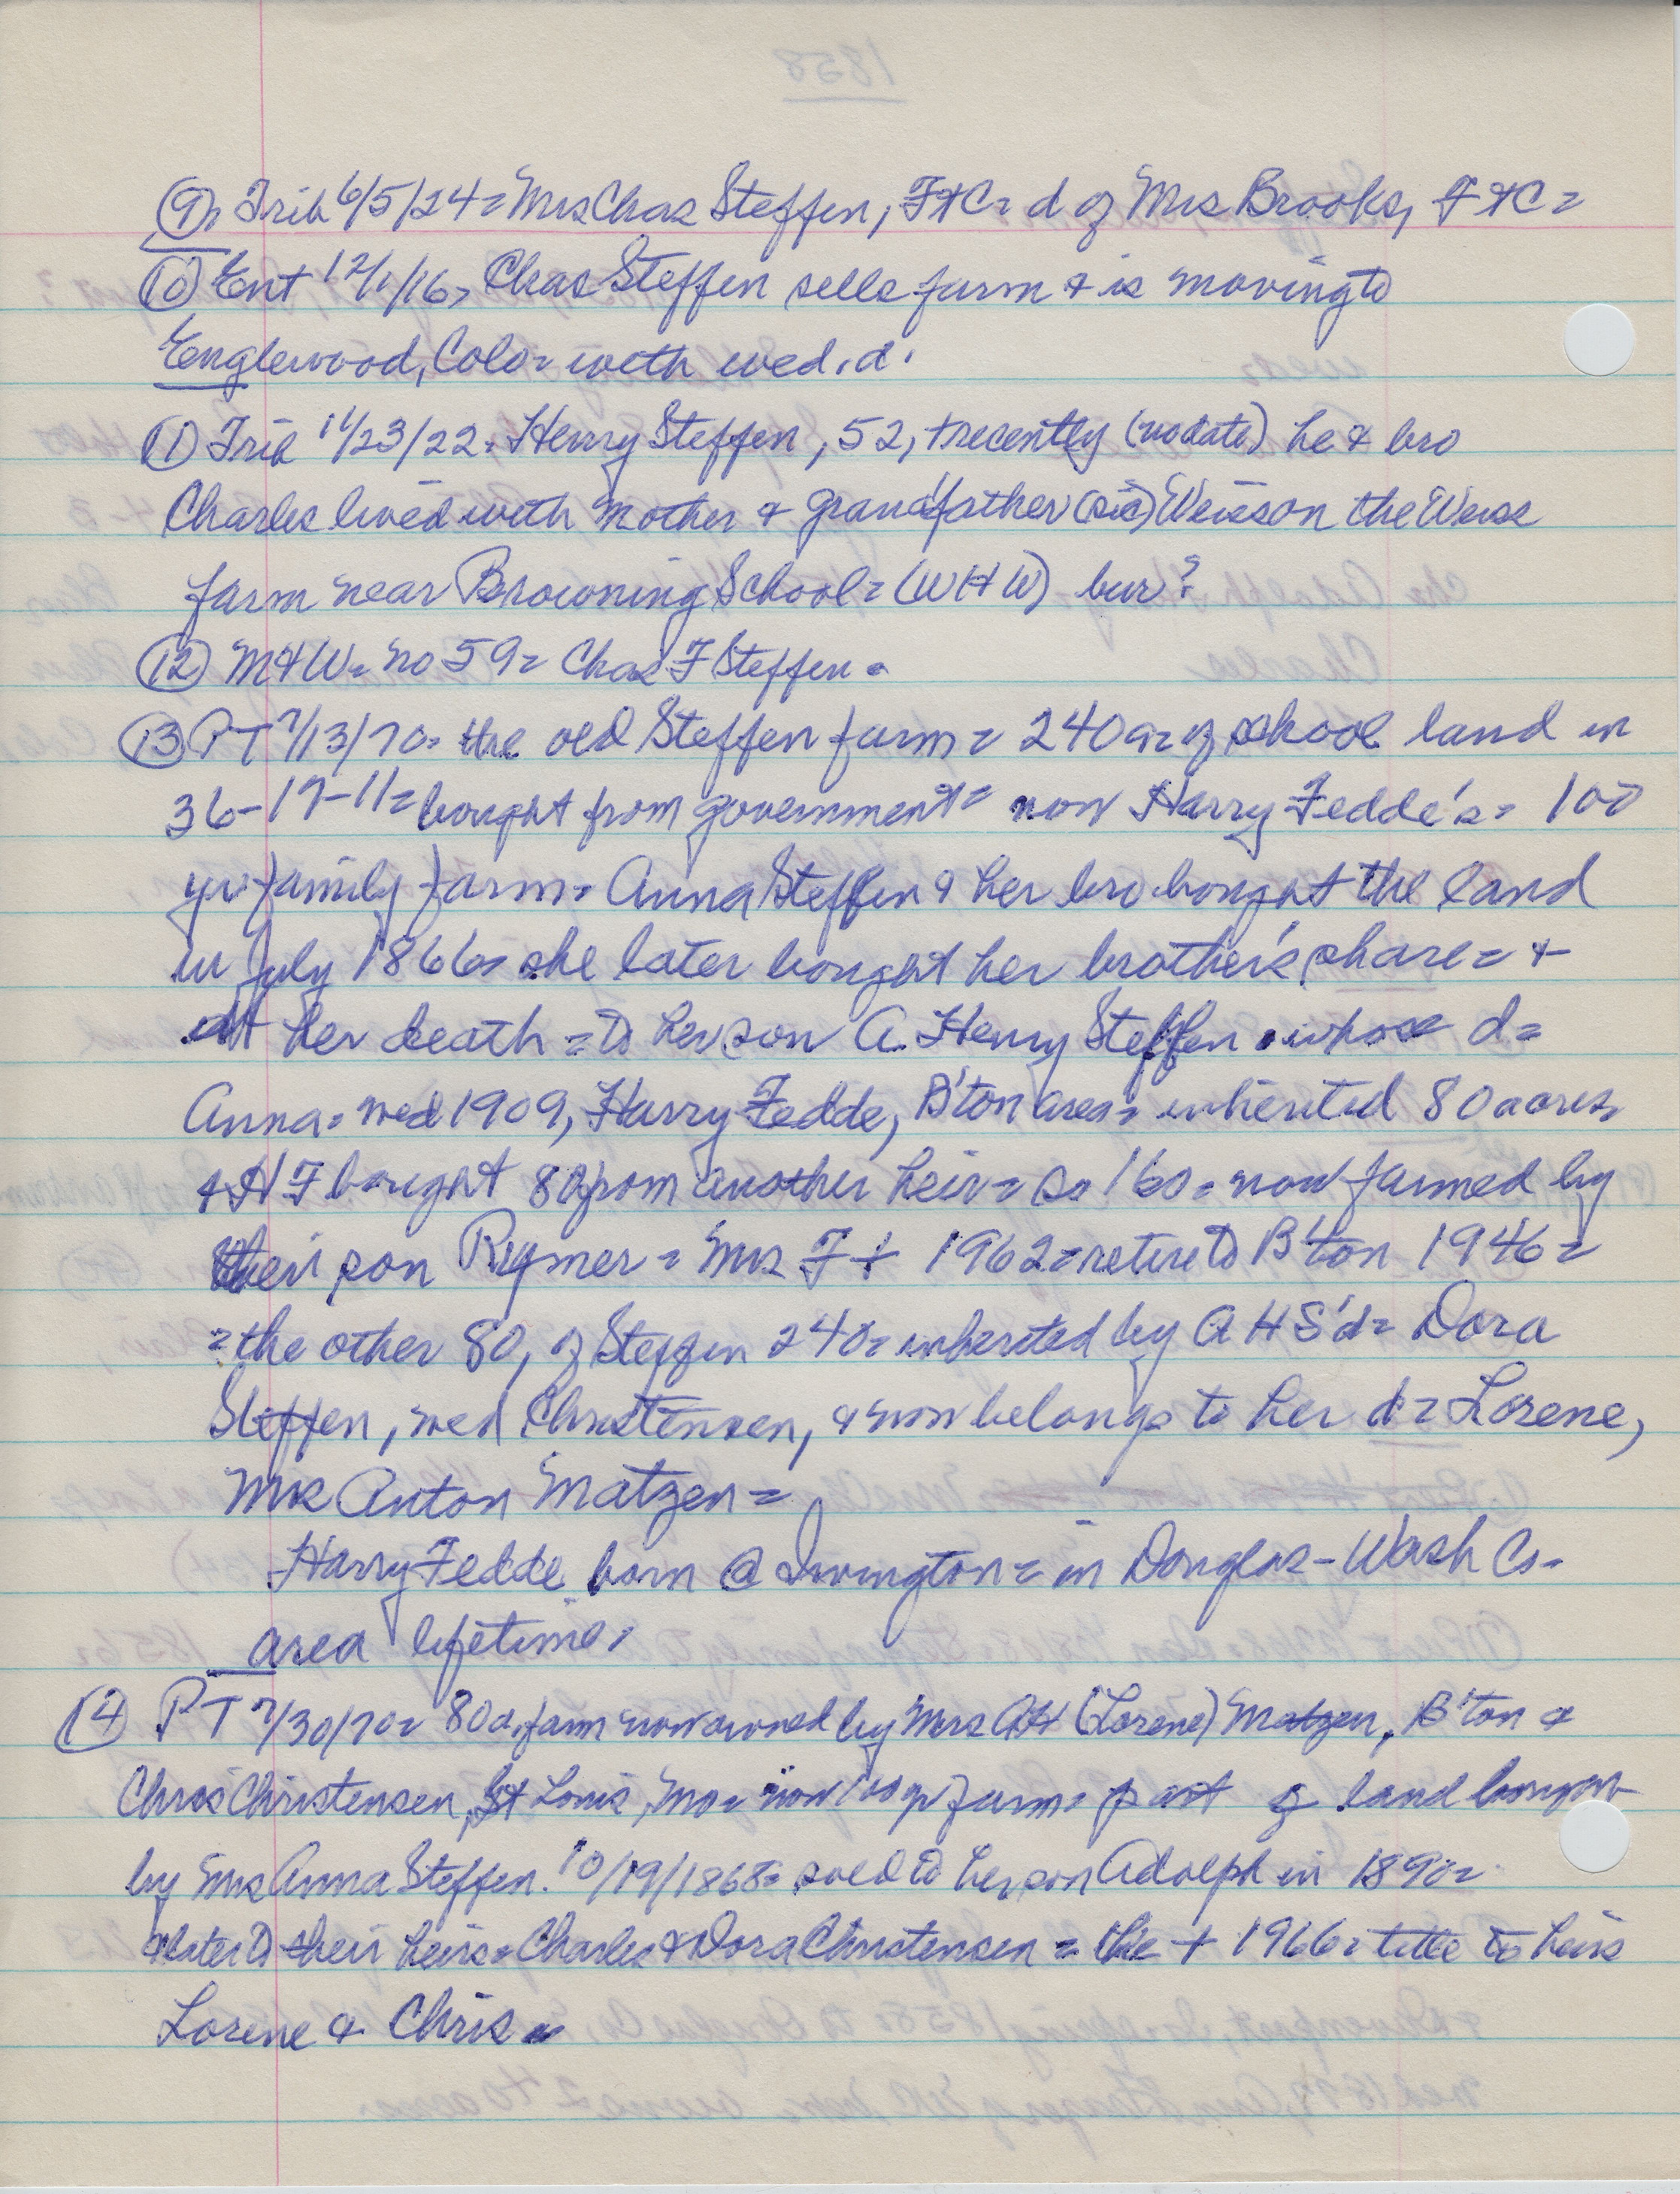 (9) Trib 6/5/24= Mrs Chas Steffen, F+C= d of Mrs Brooks, F+C=
(10) Ent 12/1/16= Chas Steffen sells farm & is moving to
Englewood, Colo= with wed. d.
(11) Trib 11/23/22= Henry Steffen, 52, + recently (no date) he & bro
Charles lived with mother & grandfather (sic) Weiss on the Weiss
farm near Browning School= (WHW) bur?
(12) M&W= no 59= Chas F Steffen=
(13) PT 7/13/70= the old Steffen farm= 240 a= of school land in
36-17-11= bought from government= now Harry Fedde's= 100
yr family farm= Anna Steffen & her bro bought the land
in July 1866= she later bought her brother's share= +
at her death= to her son A. Henry Steffen whose d=
Anna= wed 1909, Harry Fedde, B'ton area= inherited 80 acres
& HF bought 80 from another heir= so 160= now farmed by
their son Rymer= Mrs F + 1962= retire to B'ton 1946=
=the other 80, of Steffen 240= inherited by AHS'd= Dora
Steffen, wed Christensen, & now belongs to her d= Lorene,
Mrs Anton Matzen=
Harry Fedde born @ Irvington= in Douglas-Wash Co-
area lifetime=
(14) PT 7/30/70= 80 a. farm now owned by Mrs AH (Lorene) Matzen, B'ton &
Chris Christensen, St Louis, Mo= now 100 yr farm= part of land bought
by Mrs Anna Steffen. 10/19/1868= sold to her son Adolph in 1890=
& later to their heirs= Charles & Dora Christensen= + 1966= title to heirs
Lorene & Chris=
1858